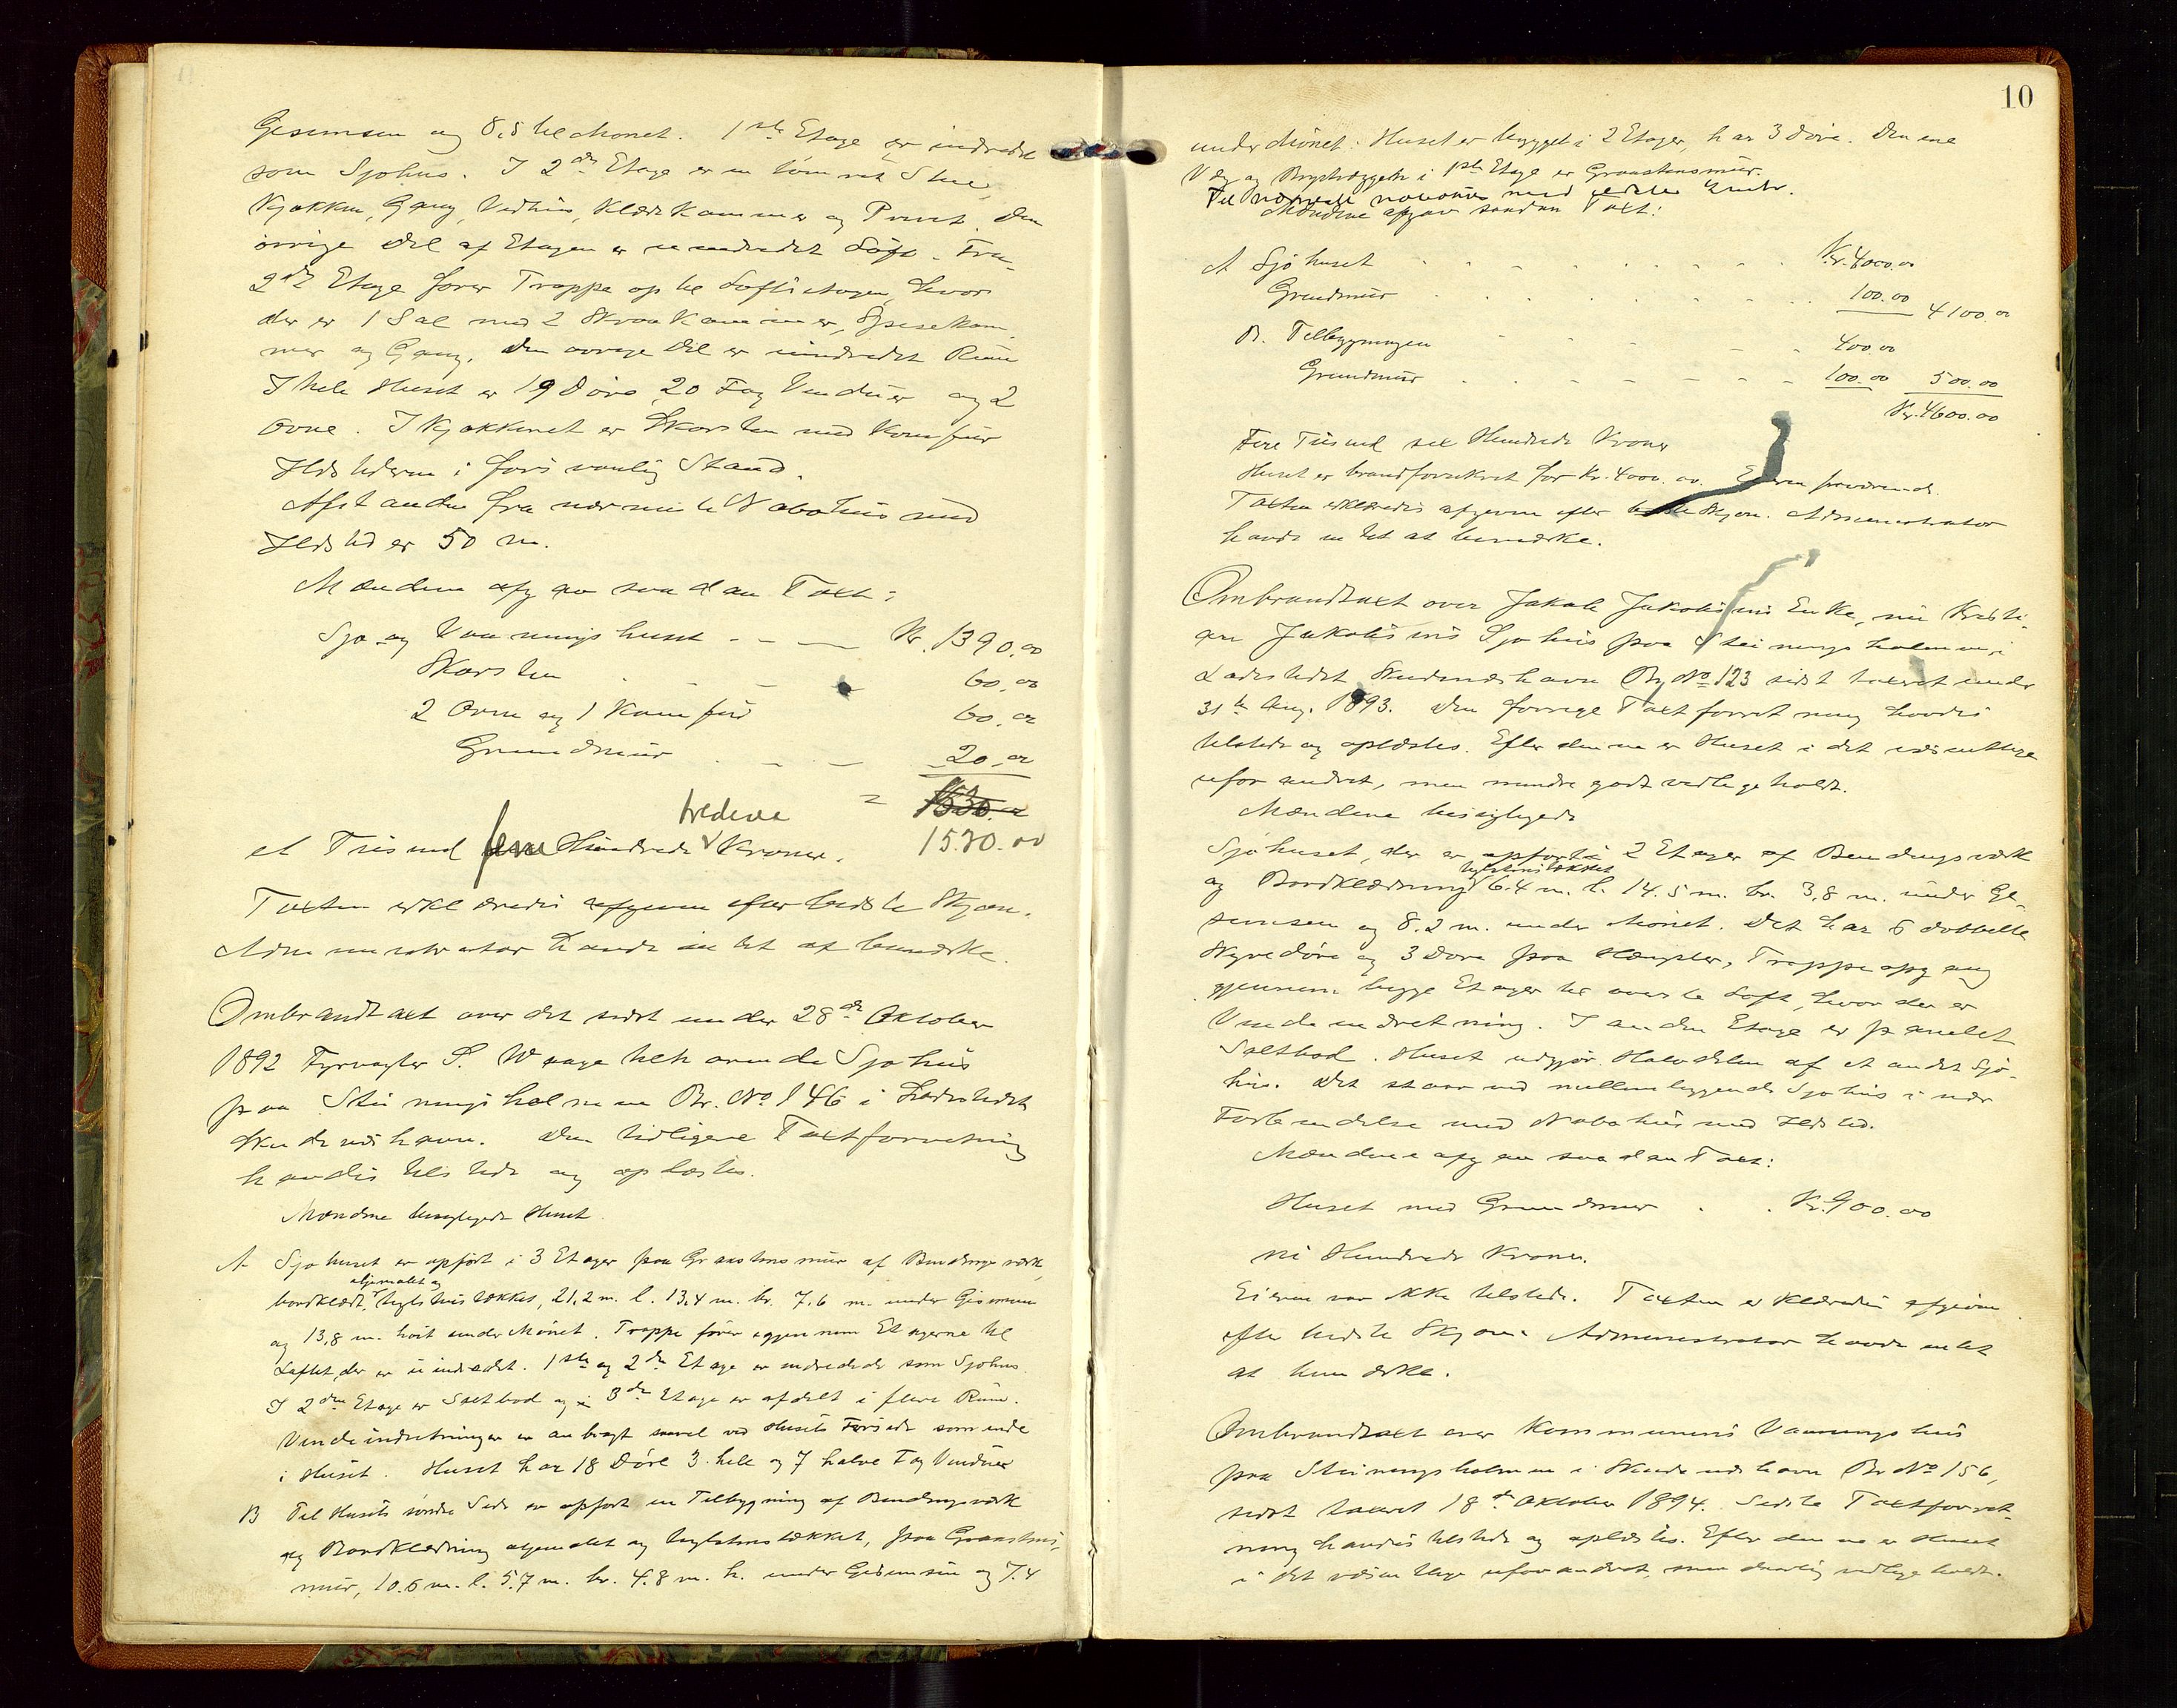 Gesimsen og 8,5 til Mønet. 1ste Etage er indredet
som Sjøhus. I 2den Etage er en tømret Stue,
Kjøkken, Gang, Vedhus, Klædekammer og Privet. Den
øvrige Del af Etagen er uindredet Loft. Fra
2den Etage fører Trappe op til Loftsetagen, hvor
der er 1 Sal med 2 Skraakammer, Spisekam-
mer og Gang. Den øvrige Del er uindredet Rum
I hele Huset er 19 Døre 20 Fag Vinduer og 2
Ovne. I Kjøkkenet er Skorsten med Komfur
Ildstederne i forsvarlig Stand.
Afstanden fra nærmeste Nabohus med
Ildsted er 50 m.
Mændene afgav saadan Taxt:
Sjø- og Vaaningshuset - - — Kr. 1390.00
Skorsten . - - 60.00
2 Ovne og 1 Komfur 60.00
Grundmur . - — 20.00
= 1530.00
tredeve
et Tusind fem Hundrede Kroner. 1530.00
Taxten erklæredes afgiven efter bedste Skjøn.
Administrator havde intet at bemærke.
Ombrandtaxt over det sidst under 28de Oktober
1892 Fyrvogter S. Waage tilhørende Sjøhus
paa Steiningsholmen Br. No 146 i Ladestedet
Skudeneshavn. Den tidligere Taxtforretning
havdes tilstede og oplæstes.
Mændene besigtigede Huset.
A Sjøhuset er opført i 3 Etager paa Graastensmur af Bindingsværk,
oljemalet og
bordklædt, teglstenstækket, 21,2 m. l. 13,4 m. br. 7,6 m. under Gesimsen
og 13,8 m. høit under Mønet. Trappe fører igjennem Etagerne til
Loftet, der er uindredet. 1ste og 2den Etage er indredede som Sjøhus.
I 2den Etage er Saltbod og i 3de Etage er afdelt i flere Rum.
Vindeindretninger er anbragt saavel ved Husets Forside som inde
i Huset. Huset har 18 Døre 3 hele og 7 halve Fag Vinduer
B Ved Husets søndre Side er opført en Tilbygning af Bindingsværk
og Bordklædning oljemalet og teglstenstækket, paa Graastens-
mur, 10.6 m. l. 5.7 m. br. 4.8 m. h. under Gesimsen og 7.4
10
under Mønet. Huset er bygget i 2 Etager, har 3 Døre. Den ene
Væg og Brystvæggen i 1ste Etage er Graastensmur.
Til nærmeste Nabohus med Ildsted
Mændene afgav saadan Taxt:
A Sjøhuset - - - . . - - Kr. 4000.00
Grundmur . . . . . - - 100.00 4100.00
B. Tilbygningen - - - - - 400.00
Grundmur . . - - - - 100.00 500.00
Kr. 4600.00
Fire Tusind sex Hundrede Kroner
Huset er brandforsikret for Kr. 4000.00. Eieren fraværende.
Taxten erklæredes afgiven efter bedste Skjøn. Administrator
havde intet at bemærke.
Ombrandtaxt over Jakob Jakobsens Enke, nu Kristi-
an Jakobsens Sjøhus paa Steiningsholmen i
Ladestedet Skudeneshavn Br. No 123 sidst taxeret under
31te Aug. 1893. Den forrige Taxtforretning havdes
tilstede og oplæstes. Efter denne er Huset i det væsentlige
uforandret, men mindre godt vedligeholdt.
Mændene besigtigede
Sjøhuset, der er opført i 2 Etager af Bindingsværk
teglstenstækket
og Bordklædning 6.4 m. l. 14.5 m. br. 3,8 m. under Ge-
simsen og 8.2 m. under Mønet. Det har 6 dobbelte
Skyvedøre og 3 Døre paa Hængsler, Trappeopgang
gjennem begge Etager til øverste Loft, hvor der er
Vindeindretning. I anden Etage er panelet
Saltbod. Huset udgjør Halvdelen af et andet Sjø-
hus. Det staar ved mellemliggende Sjøhus i nær
Forbindelse med Nabohus med Ildsted.
Mændene afgav saadan Taxt:
Huset med Grundmur . . Kr. 900.00
ni Hundrede Kroner.
Eieren var ikke tilstede. Taxten erklæredes afgiven
efter bedste Skjøn. Administrator havde intet
at bemærke.
Ombrandtaxt over Kommunens Vaaningshus
paa Steiningsholmen i Skudeneshavn Br. No 156,
sidst taxeret 18de Oktober 1894. Sidste Taxtforret-
ning havdes tilstede og oplæstes. Efter denne er Huset
i det væsentlige uforandret, men daarlig vedligeholdt.